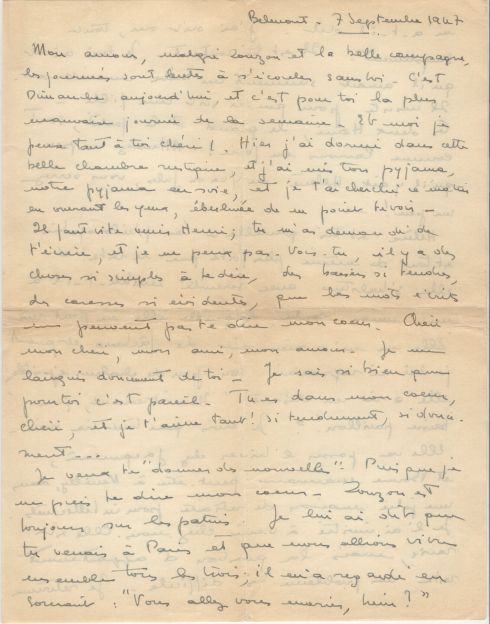 Belmont - 7 Septembre 1947
Mon amour, malgré Zouzon et la belle campagne,
les journées sont lentes à s'écouler sans toi - C'est
Dimanche aujourd'hui, et c'est pour toi la plus
mauvaise journée de la semaine ! Et moi je
pense tant à toi chéri ! Hier j'ai dormi dans cette
belle chambre rustique, et j'ai mis ton pyjama,
notre pyjama en soie, et je t'ai cherché ce matin
en ouvrant les yeux, étonnée de ne point te voir -
Il faut vite venir Henri ; tu m'as demandé de
t'écrire et je ne peux pas - Vois-tu, il y a des
choses si simples à te dire, des baisers si tendres,
des caresses si évidentes, que les mots écrits
ne peuvent pas te dire mon coeur - Chéri
mon chéri, mon ami, mon amour - Je me
languis doucement de toi - Je sais si bien que
pour toi c'est pareil - Tu es dans mon coeur,
chéri, et je t'aime tant ! si tendrement, si douce-
ment ---
Je veux te "donner des nouvelles". Puisque je
ne puis te dire mon coeur - Zouzon est
toujours sur les patins. Je lui ai dit que
tu venais à Paris et que nous allions vivre
ensemble tous les trois : il m'a regardé en
souriant : "Vous allez vous marier, hein ?"